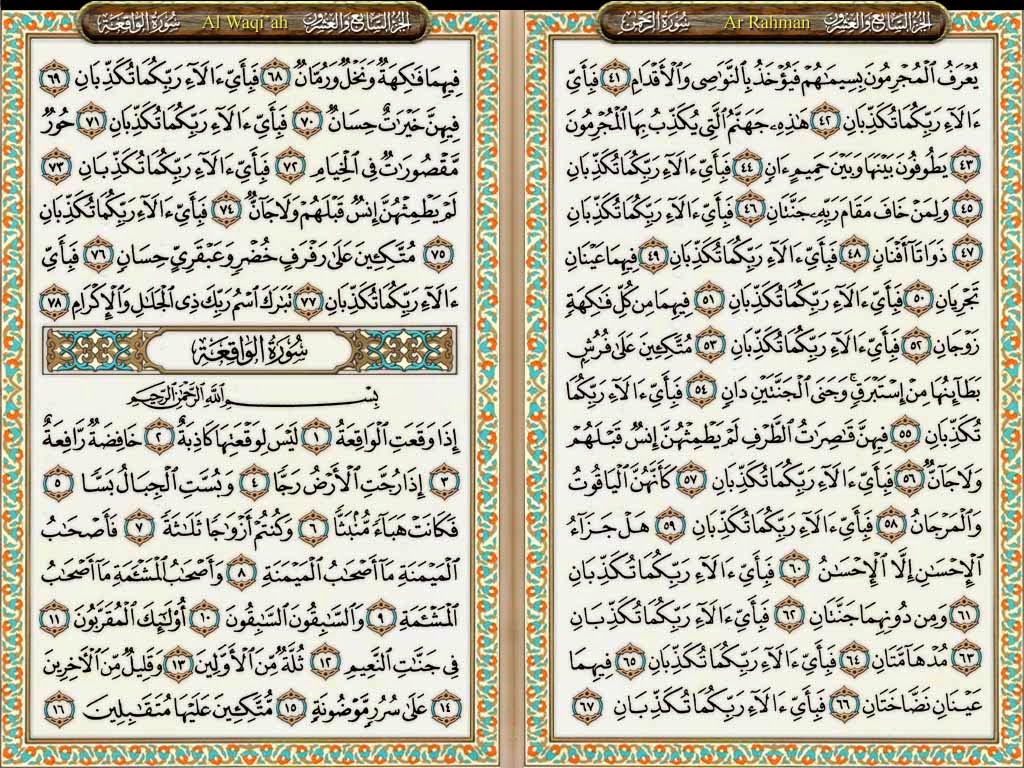 سُورَةُ الرَّحْمٰن Ar Rahman الجزء السابع والعشرون
يُعْرَفُ الْمُجْرِمُونَ بِسِيمَاهُمْ فَيُؤْخَذُ بِالنَّوَاصِي وَالْأَقْدَامِ ٤١ فَبِأَيِّ
ءَالَاءِ رَبِّكُمَا تُكَذِّبَانِ ٤٢ هَٰذِهِ جَهَنَّمُ الَّتِي يُكَذِّبُ بِهَا الْمُجْرِمُونَ
٤٣ يَطُوفُونَ بَيْنَهَا وَبَيْنَ حَمِيمٍ ءَانٍ ٤٤ فَبِأَيِّ ءَالَاءِ رَبِّكُمَا تُكَذِّبَانِ
٤٥ وَلِمَنْ خَافَ مَقَامَ رَبِّهِ جَنَّتَانِ ٤٦ فَبِأَيِّ ءَالَاءِ رَبِّكُمَا تُكَذِّبَانِ
٤٧ ذَوَاتَا أَفْنَانٍ ٤٨ فَبِأَيِّ ءَالَاءِ رَبِّكُمَا تُكَذِّبَانِ ٤٩ فِيهِمَا عَيْنَانِ
تَجْرِيَانِ ٥٠ فَبِأَيِّ ءَالَاءِ رَبِّكُمَا تُكَذِّبَانِ ٥١ فِيهِمَا مِن كُلِّ فَاكِهَةٍ
زَوْجَانِ ٥٢ فَبِأَيِّ ءَالَاءِ رَبِّكُمَا تُكَذِّبَانِ ٥٣ مُتَّكِئِينَ عَلَىٰ فُرُشٍ
بَطَائِنُهَا مِنْ إِسْتَبْرَقٍ ۚ وَجَنَى الْجَنَّتَيْنِ دَانٍ ٥٤ فَبِأَيِّ ءَالَاءِ رَبِّكُمَا
تُكَذِّبَانِ ٥٥ فِيهِنَّ قَاصِرَاتُ الطَّرْفِ لَمْ يَطْمِثْهُنَّ إِنسٌ قَبْلَهُمْ
وَلَا جَانٌّ ٥٦ فَبِأَيِّ ءَالَاءِ رَبِّكُمَا تُكَذِّبَانِ ٥٧ كَأَنَّهُنَّ الْيَاقُوتُ
وَالْمَرْجَانُ ٥٨ فَبِأَيِّ ءَالَاءِ رَبِّكُمَا تُكَذِّبَانِ ٥٩ هَلْ جَزَاءُ
الْإِحْسَانِ إِلَّا الْإِحْسَانُ ٦٠ فَبِأَيِّ ءَالَاءِ رَبِّكُمَا تُكَذِّبَانِ
٦١ وَمِن دُونِهِمَا جَنَّتَانِ ٦٢ فَبِأَيِّ ءَالَاءِ رَبِّكُمَا تُكَذِّبَانِ
٦٣ مُدْهَامَّتَانِ ٦٤ فَبِأَيِّ ءَالَاءِ رَبِّكُمَا تُكَذِّبَانِ ٦٥ فِيهِمَا
عَيْنَانِ نَضَّاخَتَانِ ٦٦ فَبِأَيِّ ءَالَاءِ رَبِّكُمَا تُكَذِّبَانِ ٦٧
سُورَةُ الْوَاقِعَة Al Waqi`ah الجزء السابع والعشرون
فِيهِمَا فَاكِهَةٌ وَنَخْلٌ وَرُمَّانٌ ٦٨ فَبِأَيِّ ءَالَاءِ رَبِّكُمَا تُكَذِّبَانِ ٦٩
فِيهِنَّ خَيْرَاتٌ حِسَانٌ ٧٠ فَبِأَيِّ ءَالَاءِ رَبِّكُمَا تُكَذِّبَانِ ٧١ حُورٌ
مَّقْصُورَاتٌ فِي الْخِيَامِ ٧٢ فَبِأَيِّ ءَالَاءِ رَبِّكُمَا تُكَذِّبَانِ ٧٣
لَمْ يَطْمِثْهُنَّ إِنسٌ قَبْلَهُمْ وَلَا جَانٌّ ٧٤ فَبِأَيِّ ءَالَاءِ رَبِّكُمَا تُكَذِّبَانِ
٧٥ مُتَّكِئِينَ عَلَىٰ رَفْرَفٍ خُضْرٍ وَعَبْقَرِيٍّ حِسَانٍ ٧٦ فَبِأَيِّ
ءَالَاءِ رَبِّكُمَا تُكَذِّبَانِ ٧٧ تَبَارَكَ اسْمُ رَبِّكَ ذِي الْجَلَالِ وَالْإِكْرَامِ ٧٨
سُورَةُ الْوَاقِعَةِ
بِسْمِ اللَّهِ الرَّحْمَٰنِ الرَّحِيمِ
إِذَا وَقَعَتِ الْوَاقِعَةُ ١ لَيْسَ لِوَقْعَتِهَا كَاذِبَةٌ ٢ خَافِضَةٌ رَّافِعَةٌ
٣ إِذَا رُجَّتِ الْأَرْضُ رَجًّا ٤ وَبُسَّتِ الْجِبَالُ بَسًّا ٥
فَكَانَتْ هَبَاءً مُّنبَثًّا ٦ وَكُنتُمْ أَزْوَاجًا ثَلَاثَةً ٧ فَأَصْحَابُ
الْمَيْمَنَةِ مَا أَصْحَابُ الْمَيْمَنَةِ ٨ وَأَصْحَابُ الْمَشْئَمَةِ مَا أَصْحَابُ
الْمَشْئَمَةِ ٩ وَالسَّابِقُونَ السَّابِقُونَ ١٠ أُولَٰئِكَ الْمُقَرَّبُونَ ١١
فِي جَنَّاتِ النَّعِيمِ ١٢ ثُلَّةٌ مِّنَ الْأَوَّلِينَ ١٣ وَقَلِيلٌ مِّنَ الْآخِرِينَ
١٤ عَلَىٰ سُرُرٍ مَّوْضُونَةٍ ١٥ مُّتَّكِئِينَ عَلَيْهَا مُتَقَابِلِينَ ١٦